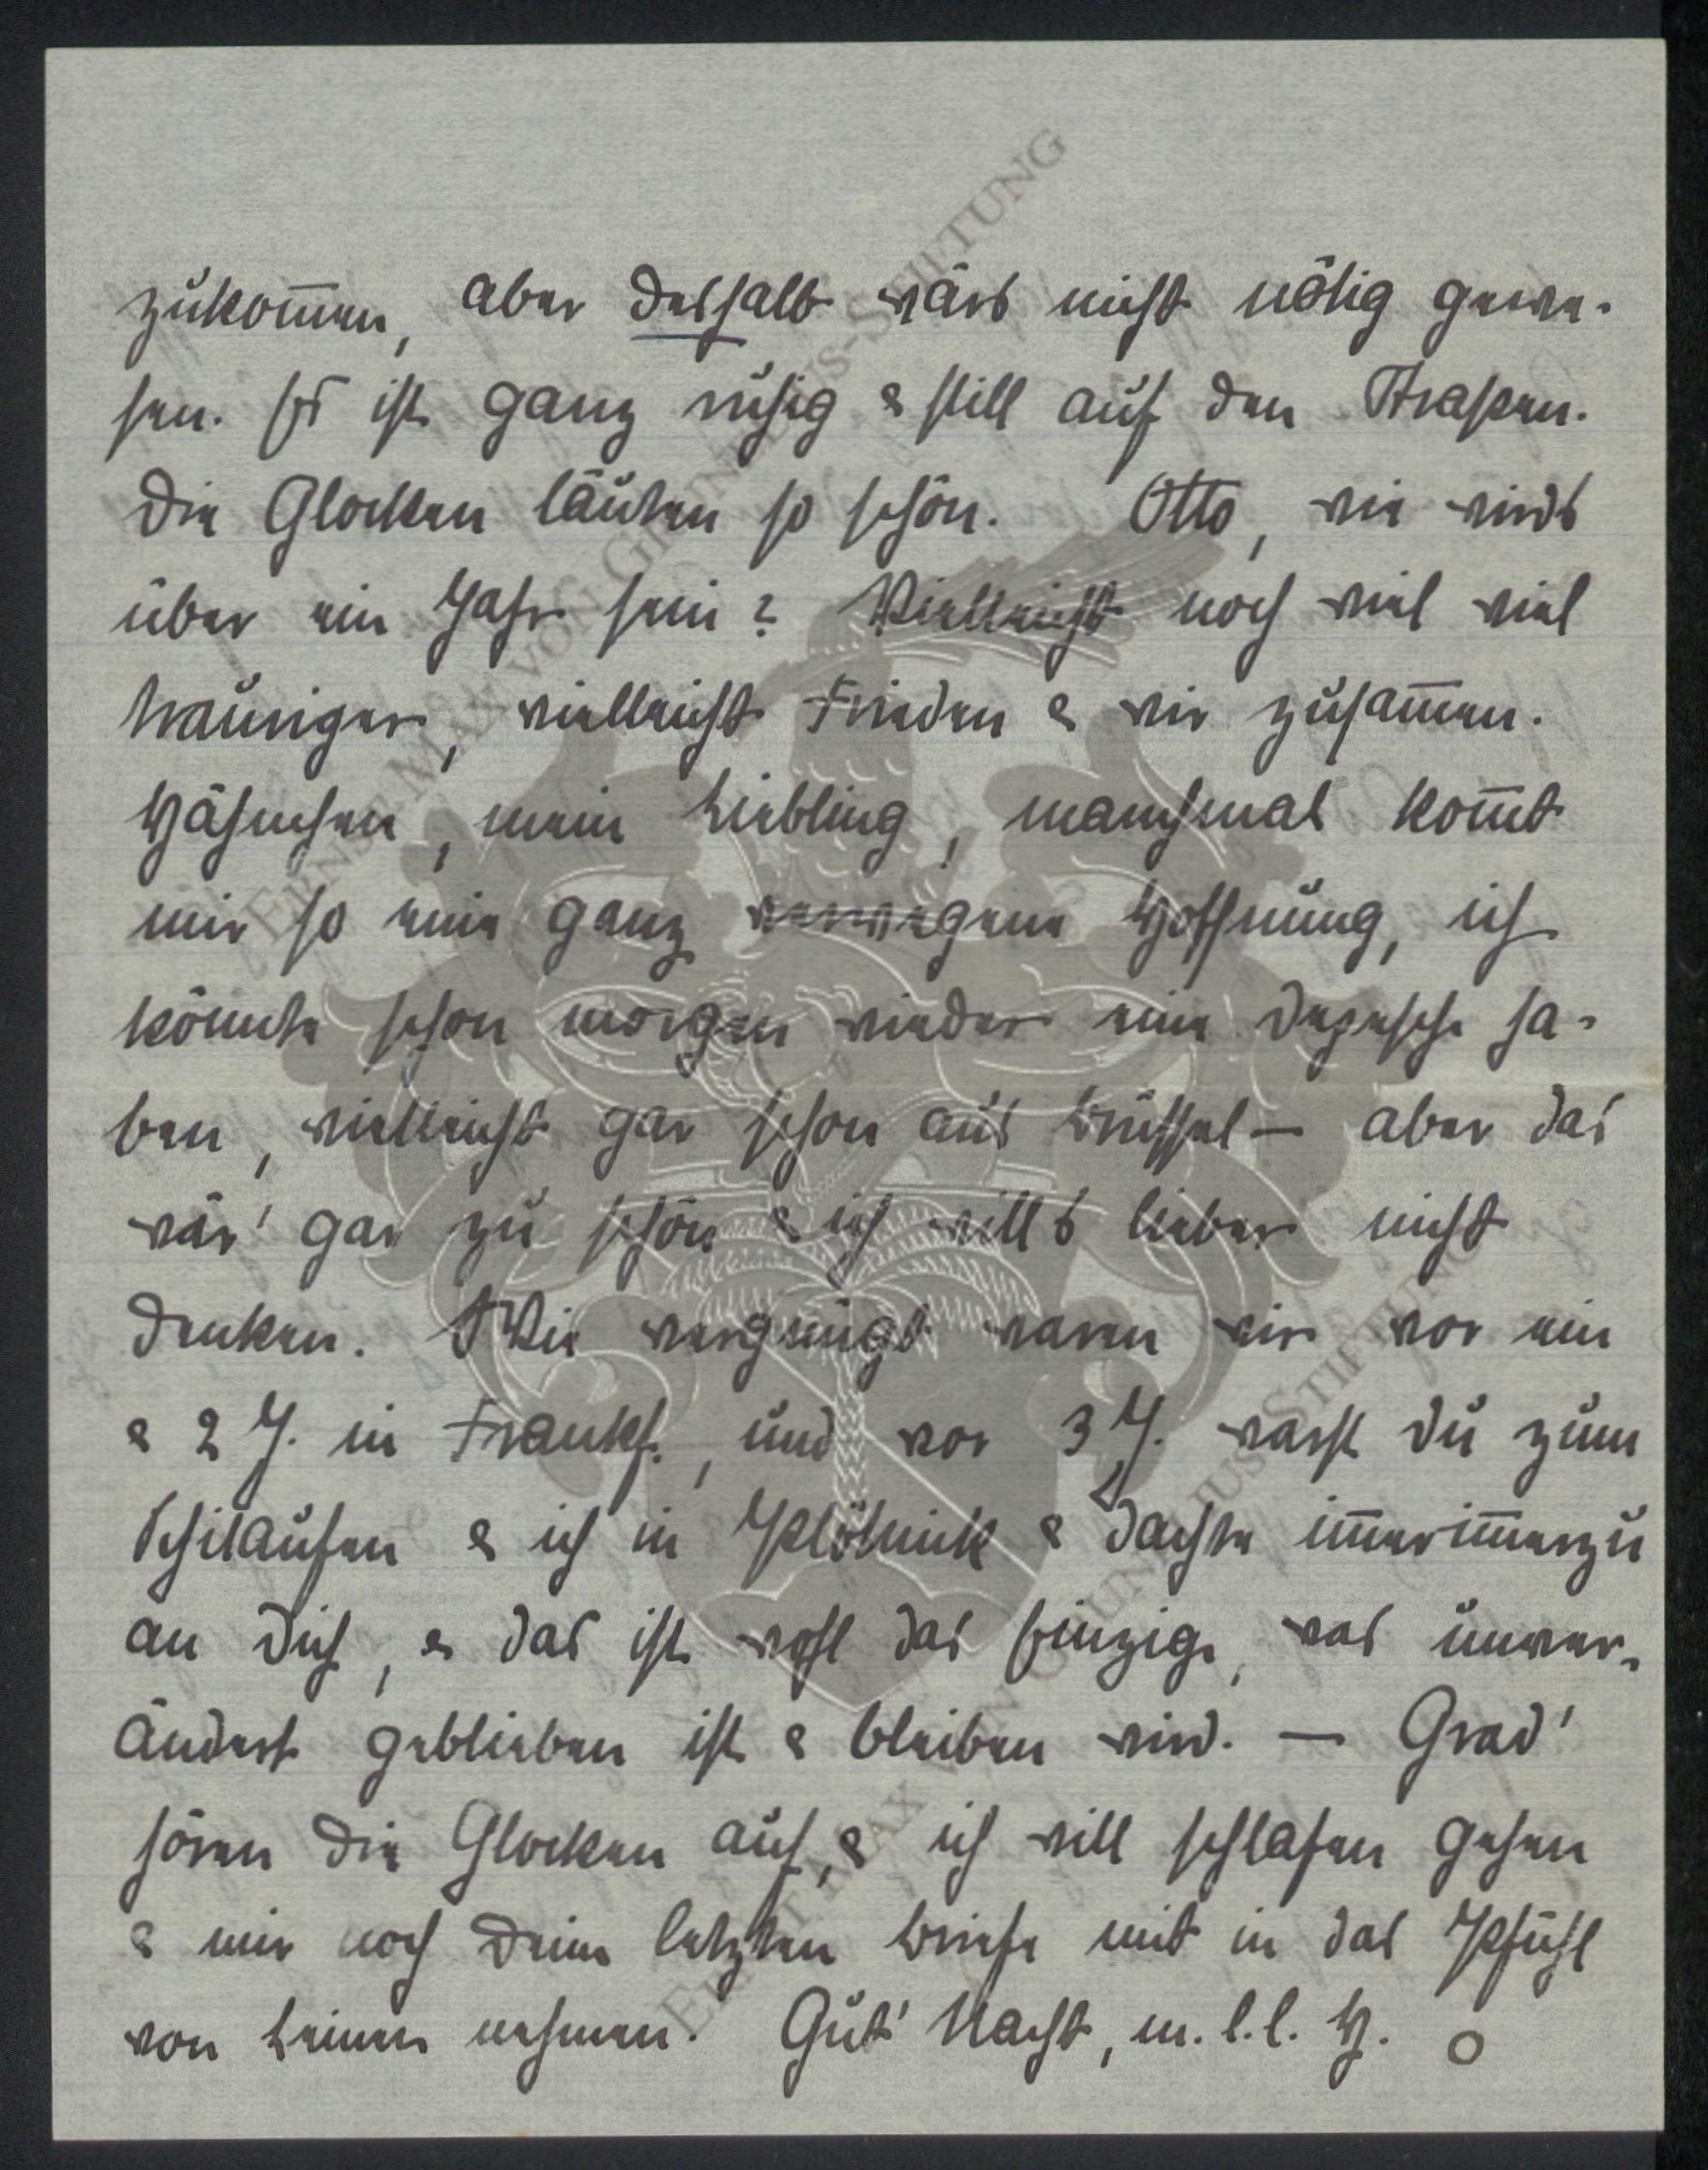 zukom̅en, aber deshalb wärs nicht nötig gewe-
sen. Es ist ganz ruhig & still auf den Strassen.
Die Glocken läuten so schön. Otto, wie wirds
über ein Jahr sein? Vielleicht noch viel viel
trauriger, vielleicht Frieden & wir zusam̅en.
Hähnchen, mein Liebling, manchmal kom̅t
mir so eine ganz verwegene Hoffnung, ich
könnte schon morgen wieder eine Depesche ha-
ben, vielleicht gar schon aus Brüssel — aber das
wär' gar zu schön & ich will's lieber nicht
denken. Wie vergnügt waren wir vor ein
& 2 J. in Frankf., und vor 3 J. warst Du zum
Schilaufen & ich in & dachte im̅erim̅erzu
an Dich, & das ist wohl das Einzige, was unver-
ändert geblieben ist & bleiben wird. — Grad'
hören die Glocken auf, & ich will schlafen gehen
& mir noch Deine letzten Briefe mit in das Pfühl
von Leinen nehmen. Gut' Nacht, m. l. l. H. O
ERNST MAX VON GRUNELIUS-STIFTUNG
ERNST MAX VON GRUNELIUS-STIFTUNG